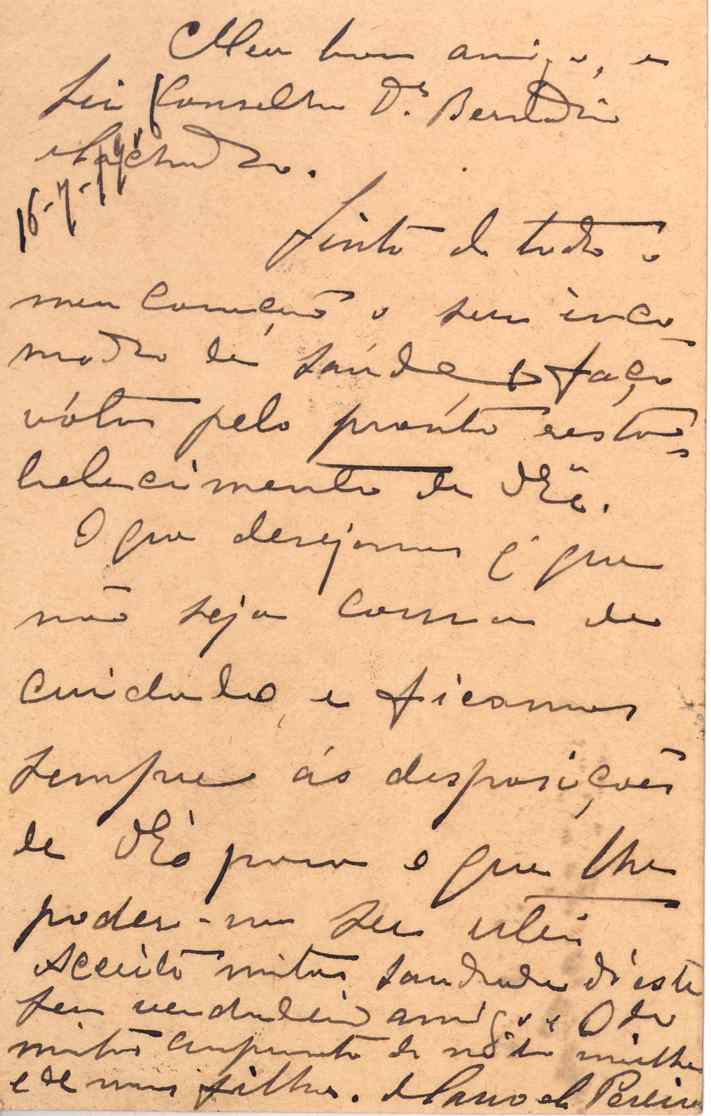 Meu bom amigo, e
Snr. Conselhro Dr. Bernardino
Machado.
16-7-14
Sinto de todo o
meu coração o seu inco
modo de saúde, e faço
vótos pelo pronto resta
belecimento de V. Exª.
O que desejamos é que
não seja cousa de
cuidado, e ficamos
sempre ás disposições
de V. Exª para o que lhe
poder-mos ser uteis
Acceite mitas saudades d'este
seu verdadeiro amigo e Obdo
mitos cumprimentos de minha mulher
e de meus filhos. Manoel Pereira